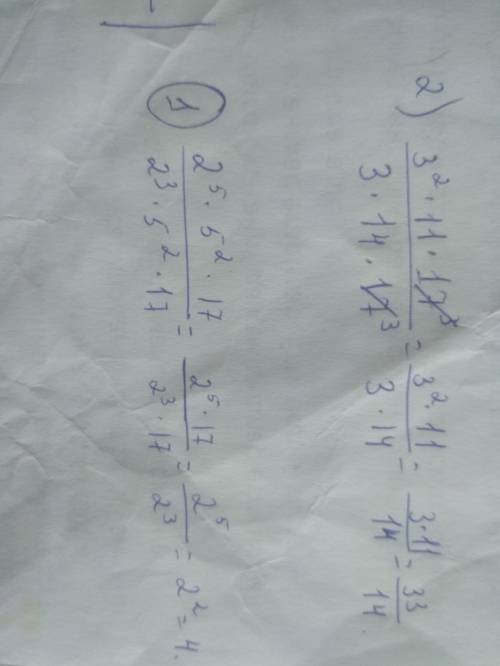 2) 3² · 11 · 17³ / 3 · 14 · 17³ = 3² · 11 / 3 · 14 = 3 · 11 / 14 = 33 / 14.
1 2⁵ · 5² · 17 / 2³ · 5² · 17 = 2⁵ · 17 / 2³ · 17 = 2⁵ / 2³ = 2² = 4.